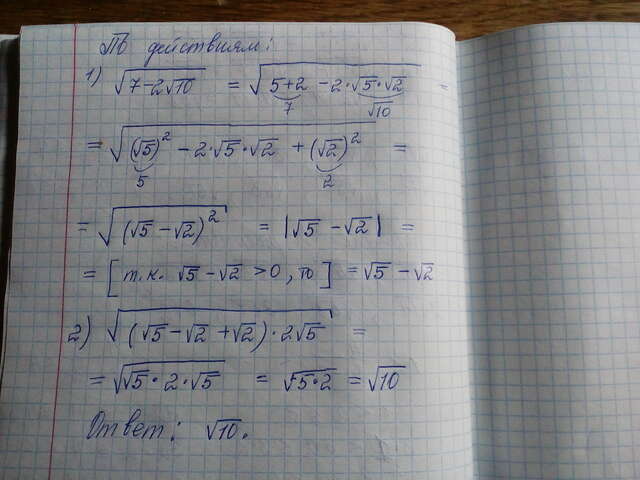 По действиям:
1) √(7-2√10) = √(5+2 -2·√5·√2) =
7 √10
= √((√5)² -2·√5·√2 +(√2)²) =
5 2
= √((√5-√2)²) = |√5-√2| =
= [т.к. √5-√2 >0, то] = √5-√2
2) √((√5-√2+√2)·2√5) =
= √(√5·2·√5) = √(5·2) = √10
Ответ: √10.